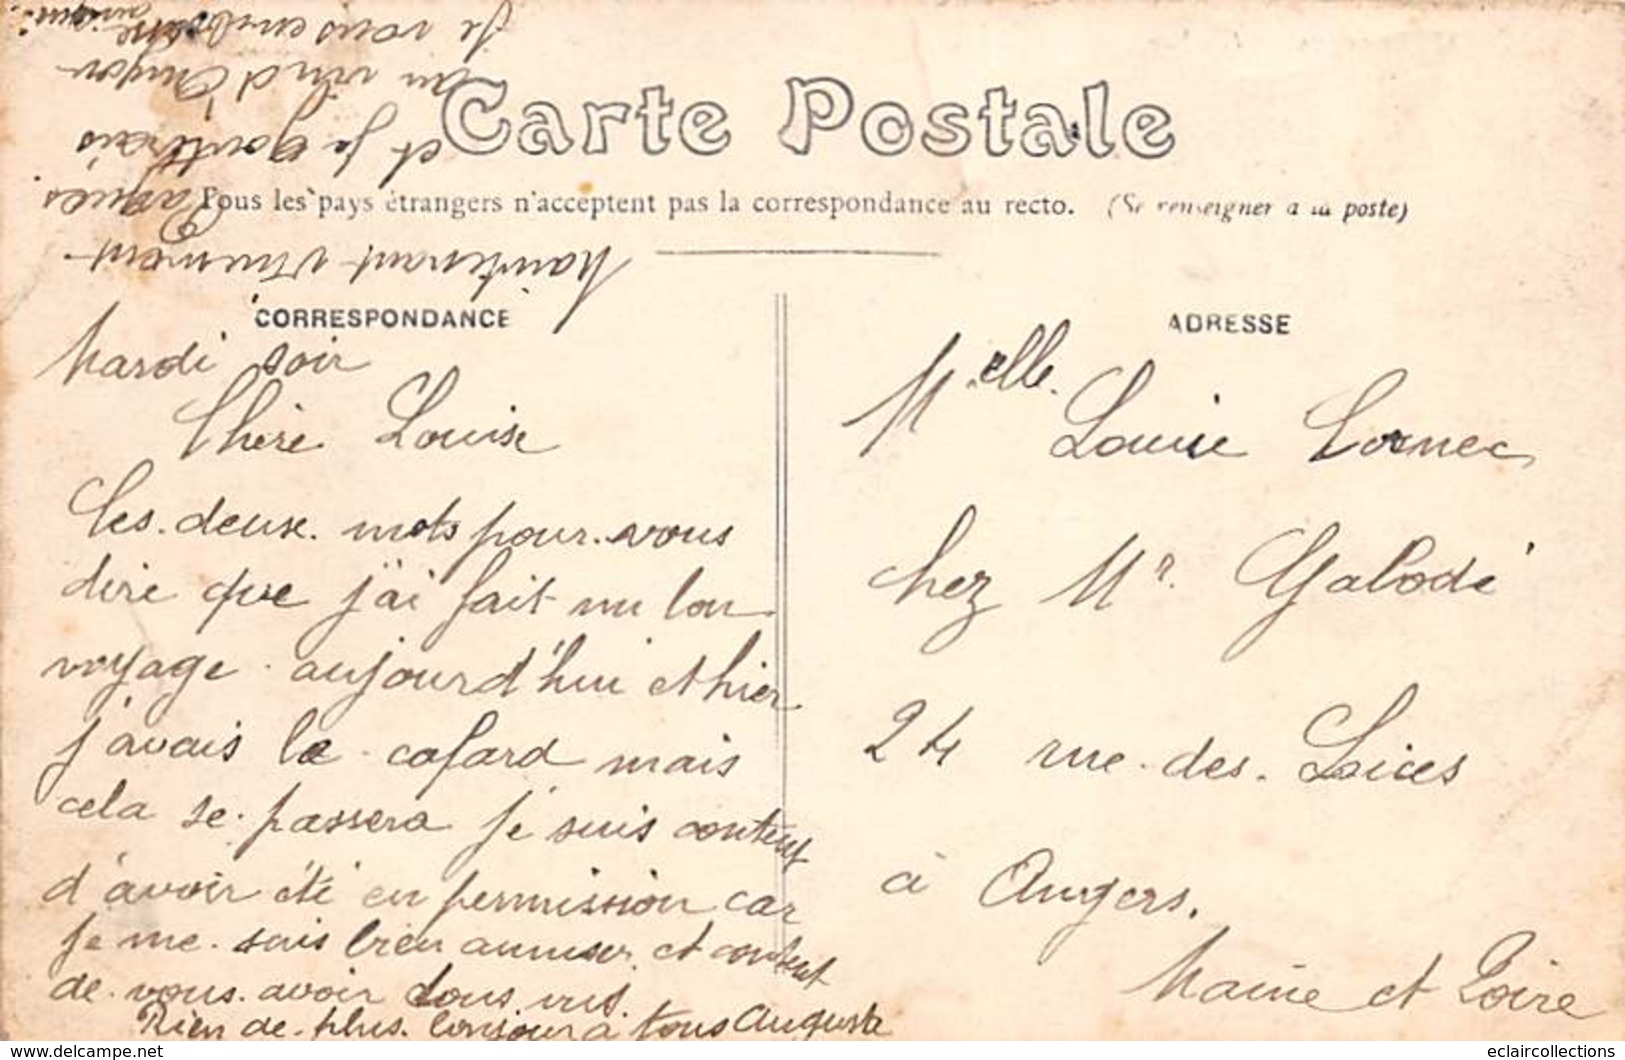 Carte Postale
Tous les pays étrangers n'acceptent pas la correspondance au recto. (Se renseigner à la poste)
CORRESPONDANCE
Mardi soir
Chère Louise
Ces deux mots pour vous
dire que j'ai fait un bon
voyage aujourd'hui et hier
j'avais le cafard mais
cela se passera je suis content
d'avoir été en permission car
je me suis bien amuser et content
de vous avoir tous vus.
Rien de plus bonjour à tous Auguste
Maintenant vivement
Paques
et je gouterais
au vin d'Anjou
Je vous embrasse
ADRESSE
Melle Louise Cornec
chez Mr Galodé
24 rue des Lices
à Angers.
Maine et Loire
https://www.delcampe.net
eclaircollections